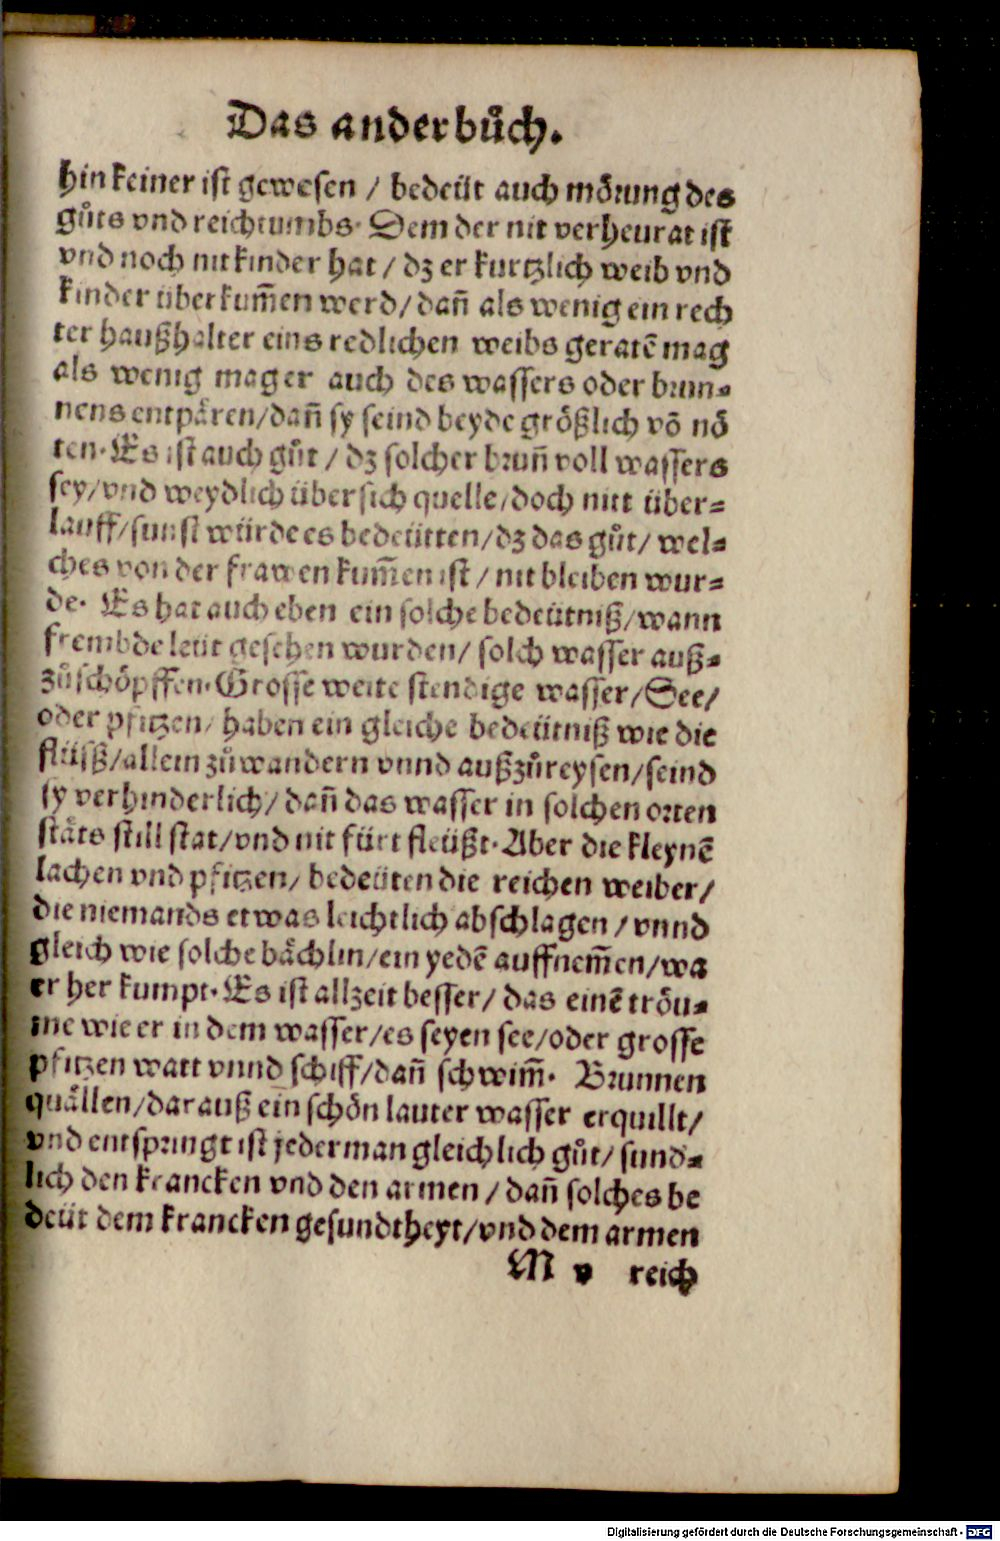 Das ander bůch.
hin keiner ist gewesen / bedeüt auch mörung des
gůts vnd reichtumbs. Dem der nit verheurat ist
vnd noch nit kinder hat / dz er kurtzlich weib vnd
kinder überkum̃en werd / dañ als wenig ein rech
ter haußhalter eins redlichen weibs geratẽ mag
als wenig mag er auch des wassers oder brun⸗
nens entpären / dañ sy seind beyde größlich võ nö
ten. Es ist auch gůt / dz solcher bruñ voll wassers
sey / vnd weydlich übersich quelle / doch nitt über⸗
lauff / sunst würde es bedeütten / dz das gůt / wel⸗
ches von der frawen kum̃en ist / nit bleiben wur⸗
de. Es hat auch eben ein solche bedeütniß / wann
frembde leüt gesehen wurden / solch wasser auß⸗
zůschöpffen. Grosse weite stendige wasser / See /
oder pfitzen / haben ein gleiche bedeütniß wie die
flüsß / allein zů wandern vnnd außzůreysen / seind
sy verhinderlich / dañ das wasser in solchen orten
stäts still stat / vnd nit fürt fleüßt. Aber die kleynẽ
lachen vnd pfitzen / bedeüten die reichen weiber /
die niemands etwas leichtlich abschlagen / vnnd
gleich wie solche bächlin / ein yedẽ auffnem̃en / wa
er her kumpt. Es ist allzeit besser / das einẽ tröu⸗
me wie er in dem wasser / es seyen see / oder grosse
pfitzen watt vnnd schiff / dañ schwim̃. Brunnen
quällen / darauß ein schön lauter wasser erquillt /
vnd entspringt ist jederman gleichlich gůt / sund⸗
lich den krancken vnd den armen / dañ solches be
deüt dem krancken gesundtheyt / vnd dem armen
M v reich
Digitalisierung gefördert durch die Deutsche Forschungsgemeinschaft - DFG